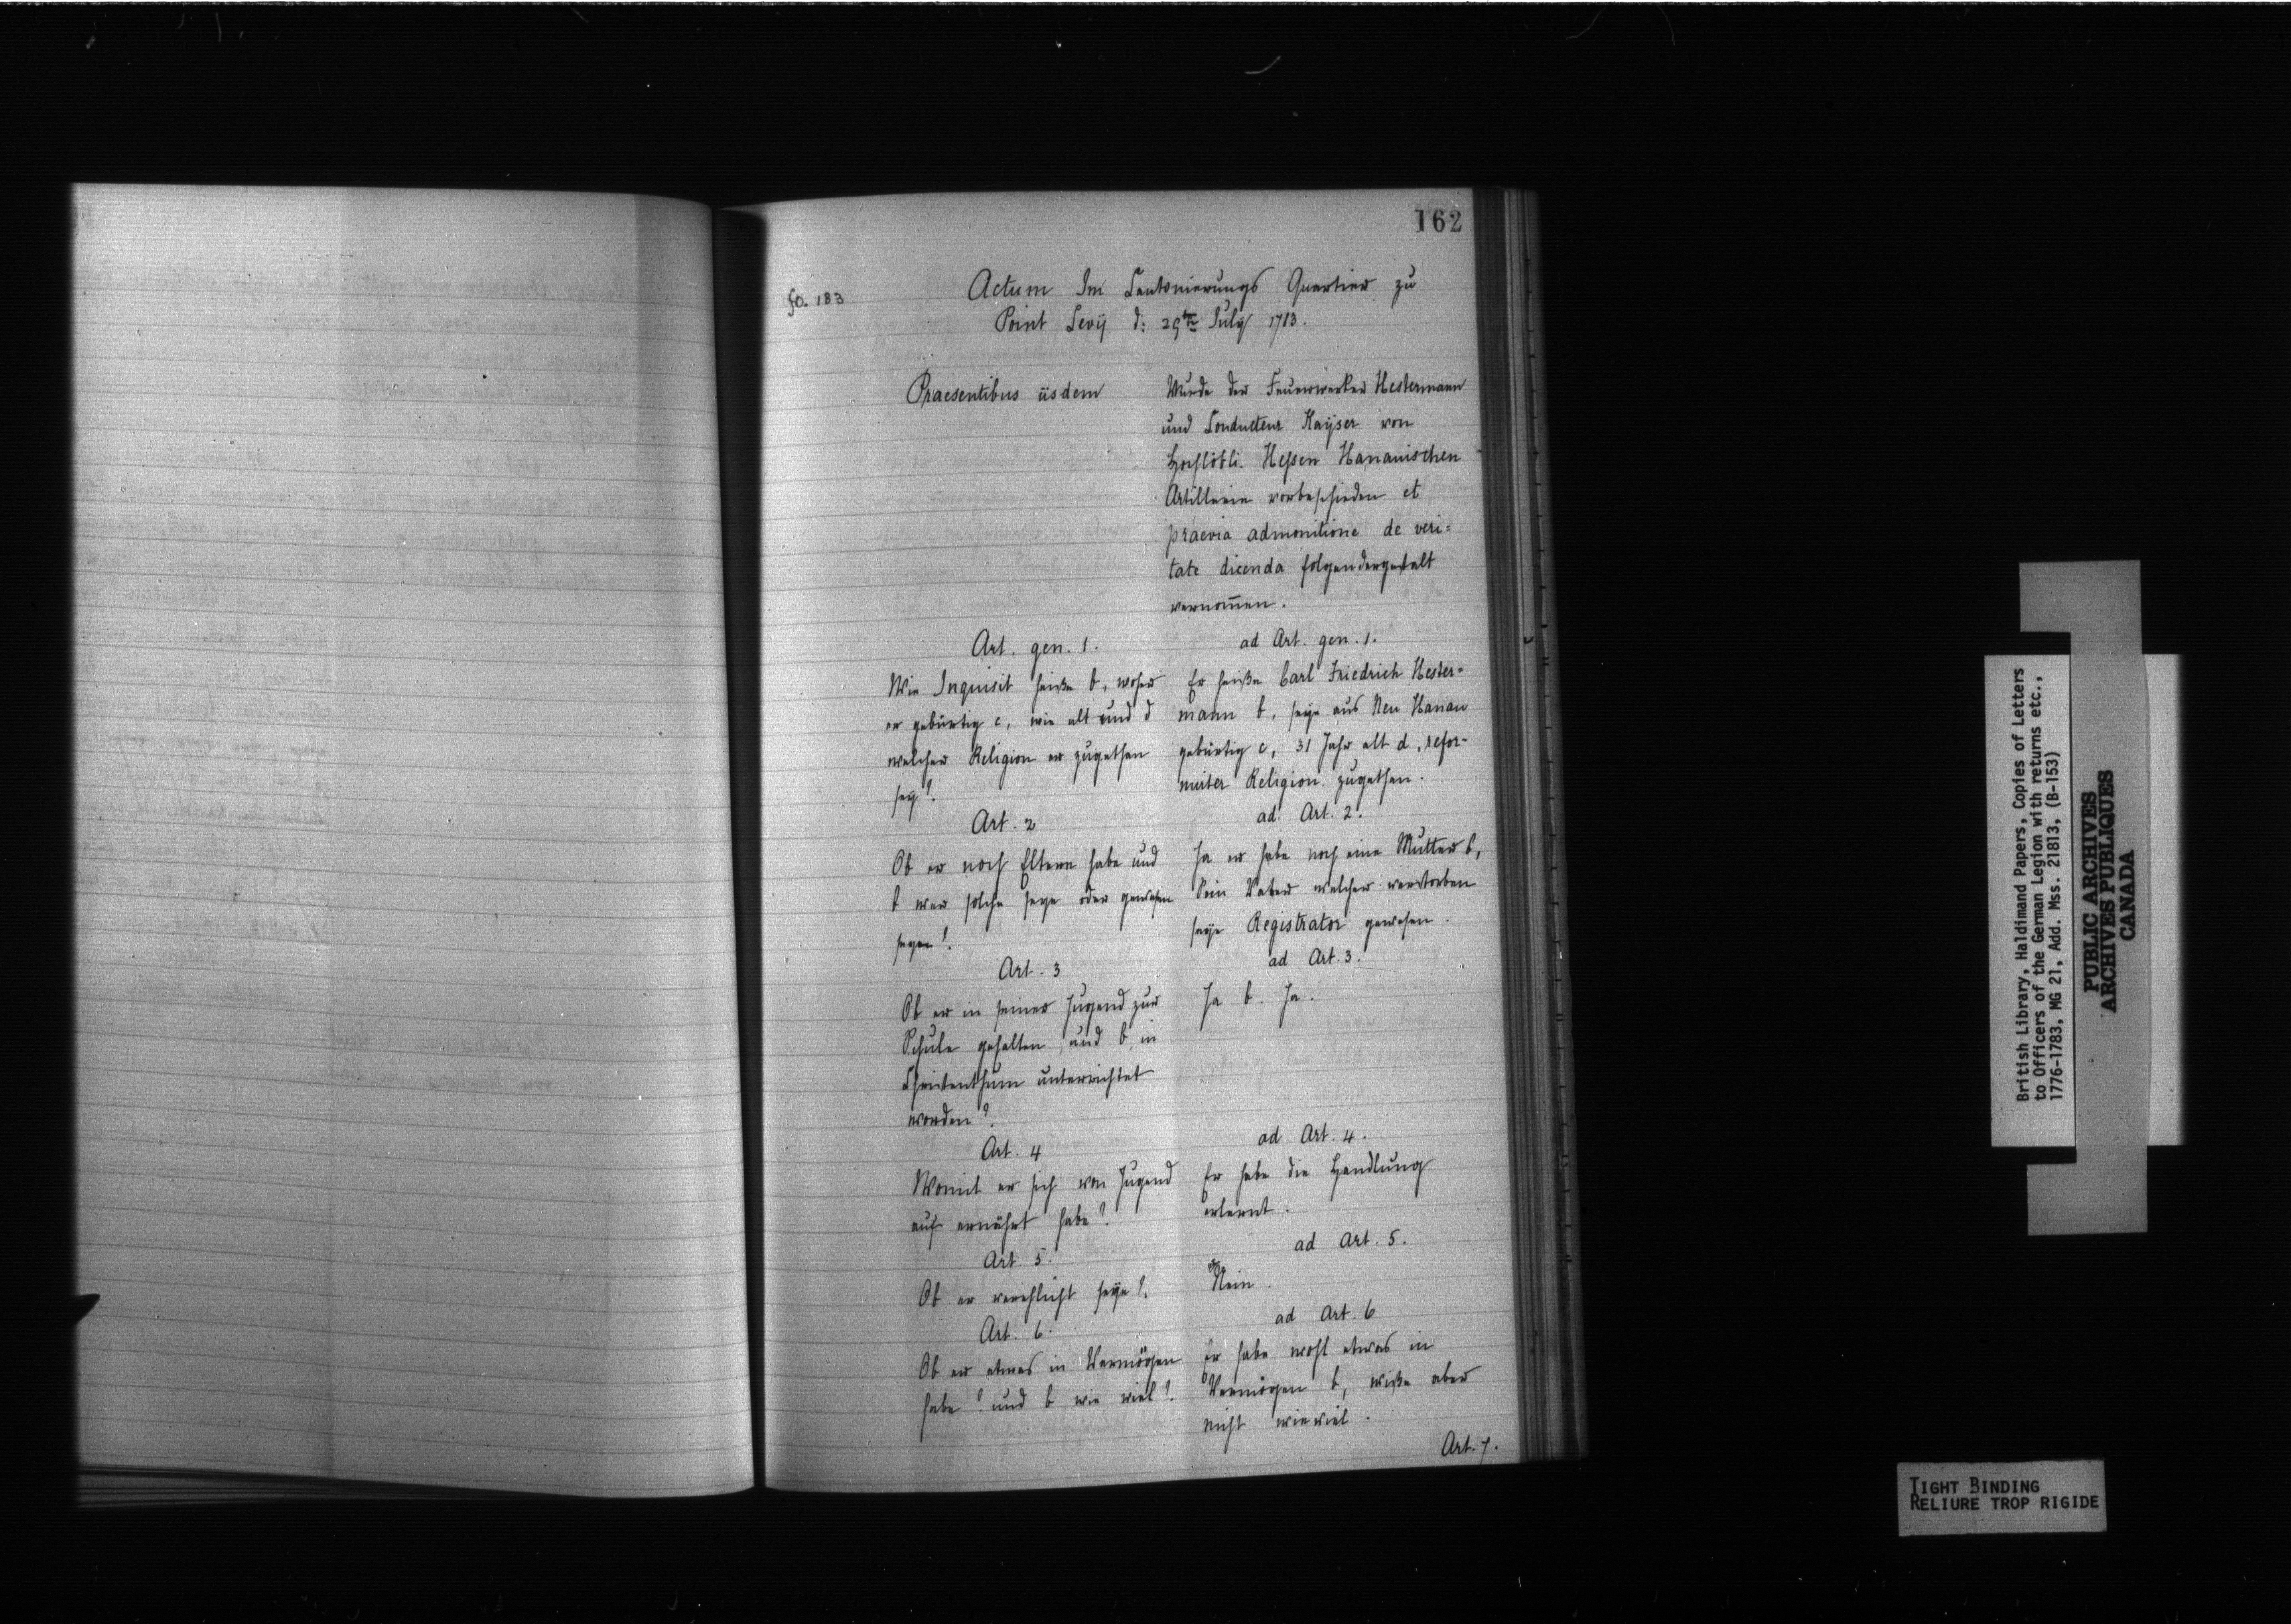 162
fo. 183
Actum Im Cantonierungs Quartier zu
Point Levÿ d: 29ten July 1783.
Praesentibus iisdem
Wurde der Feuerwerker Hestermann
und Conducteur Kaÿser von
Hochlöbli. Heßen Hanauischen
Artillerie vorbeschieden et
praevia admonitione de veri=
tate dicenda folgendergestalt
vernom̄en.
Art. gen. 1.
Wie Inquisit heiße b, woher
er gebürtig c, wie alt und d
welcher Religion er zugethan
seÿ?
ad Art. gen. 1.
Er heiße Carl Friedrich Hester=
mann b, seÿe aus Neu Hanau
gebürtig c, 31 Jahr alt d, refor-
mirter Religion zugethan.
Art. 2
Ob er noch Eltern habe und
b wer solche seye oder gewesen
seyen?
ad Art. 2.
Ja er habe noch eine Mutter b,
Sein Vater welcher verstorben
seÿe Registrator gewesen.
Art. 3
Ob er in seiner Jugend zur
Schule gehalten, und b, in
Christenthum unterrichtet
worden?
ad Art. 3.
Ja b. Ja.
Art. 4
Womit er sich von Jugend
auf ernährt habe?
ad Art. 4.
Er habe die Handlung
erlernt.
Art. 5.
Ob er verehlicht seÿe?
ad Art. 5.
Nein.
Art. 6.
Ob er etwas in Vermögen
habe? und b wie viel?
ad Art. 6
Er habe wohl etwas in
Vermögen b, wiße aber
nicht wieviel.
Art. 7.
British Library, Haldimand Papers, Copies of Letters
to Officers of the German Legion with returns etc.,
1776-1783, MG 21, Add. Mss. 21813, (B-153)
PUBLIC ARCHIVES
ARCHIVES PUBLIQUES
CANADA
TIGHT BINDING
RELIURE TROP RIGIDE